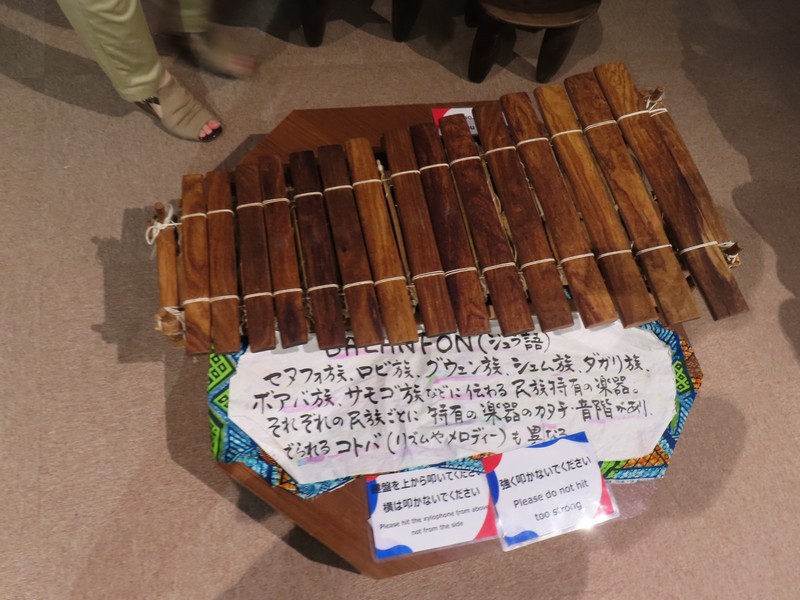 BALANFON(ジュラ語)
セヌフォ族、ロビ族、グウェン族、シェム族、ダガリ族、
ボアバ族、サモゴ族などに伝わる民族特有の楽器。
それぞれの民族ごとに特有の楽器のカタチ・音階があり、
でられるコトバ(リズムやメロディー)も異なる
鍵盤を上から叩いてください
横は叩かないでください
Please hit the xylophone from above
not from the side
強く叩かないでください
Please do not hit
too strong